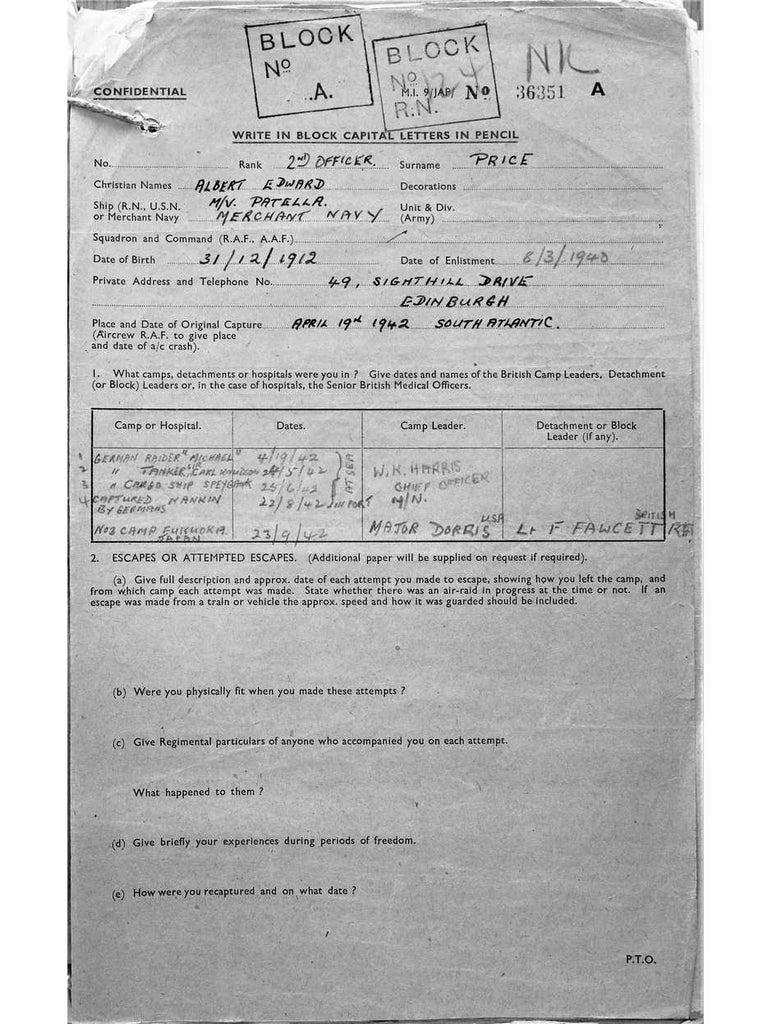 BLOCK
Nº
A.
BLOCK
Nº 124
R.N.
NK
CONFIDENTIAL
M.I. 9/JAP/ No 36351 A
WRITE IN BLOCK CAPITAL LETTERS IN PENCIL
No. Rank 2ND OFFICER. Surname PRICE
Christian Names ALBERT EDWARD Decorations
Ship (R.N., U.S.N. M/V. PATELLA. Unit & Div.
or Merchant Navy MERCHANT NAVY (Army)
Squadron and Command (R.A.F., A.A.F.)
Date of Birth 31/12/1912 Date of Enlistment 8/3/1940
Private Address and Telephone No. 49, SIGHTHILL DRIVE
EDINBURGH
Place and Date of Original Capture APRIL 19th 1942 SOUTH ATLANTIC.
(Aircrew R.A.F. to give place
and date of a/c crash).
1. What camps, detachments or hospitals were you in ? Give dates and names of the British Camp Leaders, Detachment
(or Block) Leaders or, in the case of hospitals, the Senior British Medical Officers.
Camp or Hospital. Dates. Camp Leader. Detachment or Block
Leader (if any).
1 GERMAN RAIDER "MICHAEL" 4/19/42
2 " TANKER "CARL /5/42 AT SEA W.K. HARRIS
3 " CARGO SHIP SPEYBANK 25/6/42 CHIEF OFFICER
4 CAPTURED NANKIN 22/8/42 IN PORT M/N.
BY GERMANS
No3 CAMP FUKUOKA 23/9/42 MAJOR DORRIS USA Lt F FAWCETT BRITISH
JAPAN
2. ESCAPES OR ATTEMPTED ESCAPES. (Additional paper will be supplied on request if required).
(a) Give full description and approx. date of each attempt you made to escape, showing how you left the camp, and
from which camp each attempt was made. State whether there was an air-raid in progress at the time or not. If an
escape was made from a train or vehicle the approx. speed and how it was guarded should be included.
(b) Were you physically fit when you made these attempts ?
(c) Give Regimental particulars of anyone who accompanied you on each attempt.
What happened to them ?
(d) Give briefly your experiences during periods of freedom.
(e) How were you recaptured and on what date ?
P.T.O.